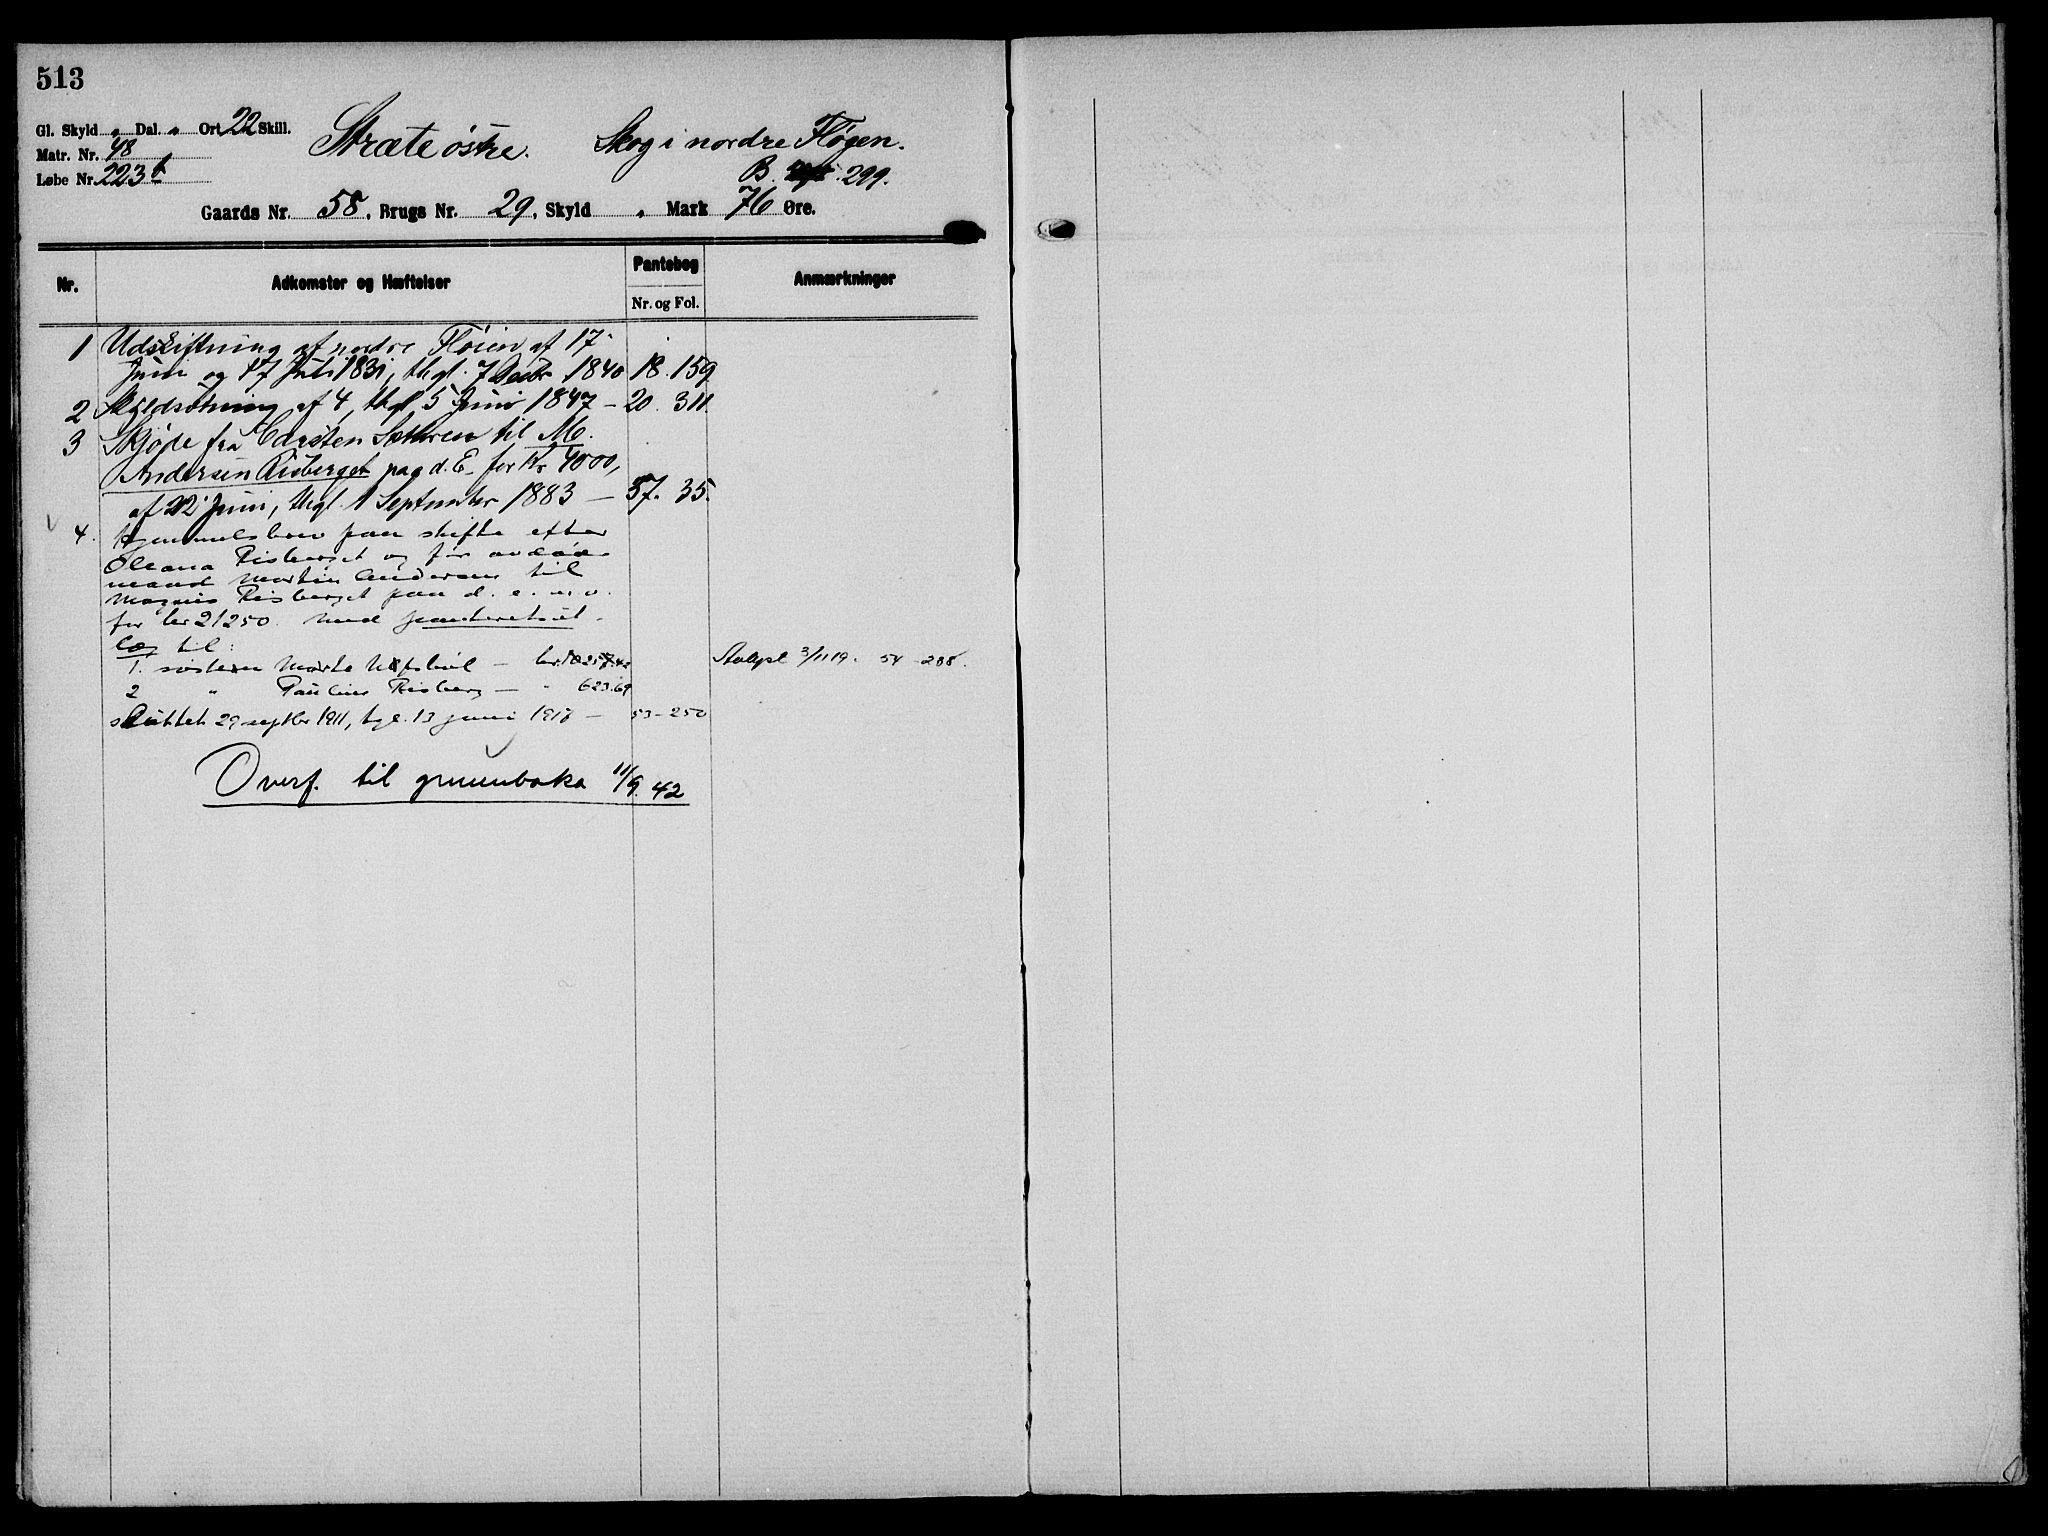 513
Gl. Skyld " Dal. " Ort 22 Skill.
Matr. Nr. 48
Løbe Nr. 223b
Stræte østre. Skog i nordre Fløgen.
B. 299.
Gaards Nr. 58, Brugs Nr. 29, Skyld " Mark 76 Øre.
Nr. Adkomster og Hæftelser Pantebog Nr. og Fol. Anmærkninger
1 Udskiftning af nordre Fløien af 17
Juni og 17 Juli 1831, thgl. 7 Decbr 1840 18. 159
2 Skyldsætning af 4, thgl 5 Juni 1847 – 20. 311.
3 Skjøde fra Carsten Sæthren til M.
Andersen Risberget paa d. E. for Kr 4000,
af 22 Juni, thgl. 1 September 1883 — 37. 35.
4. Hjemmelsbrev paa skifte efter
Oleana Risberget og før avdøde
mand Martin Andersen til
Magnus Risberget paa d. e. m. v.
for kr 21250. med panteret
til:
1. søsteren Marte – kr. 257.42 Avlyst 3/11 19. 54 – 288.
2 " Pauline Risberg — " 623.69
sluttet 29 septbr 1911, tgl. 13 juni 1918 – 53 – 250
Overf. til grunnboka 11/9. 42